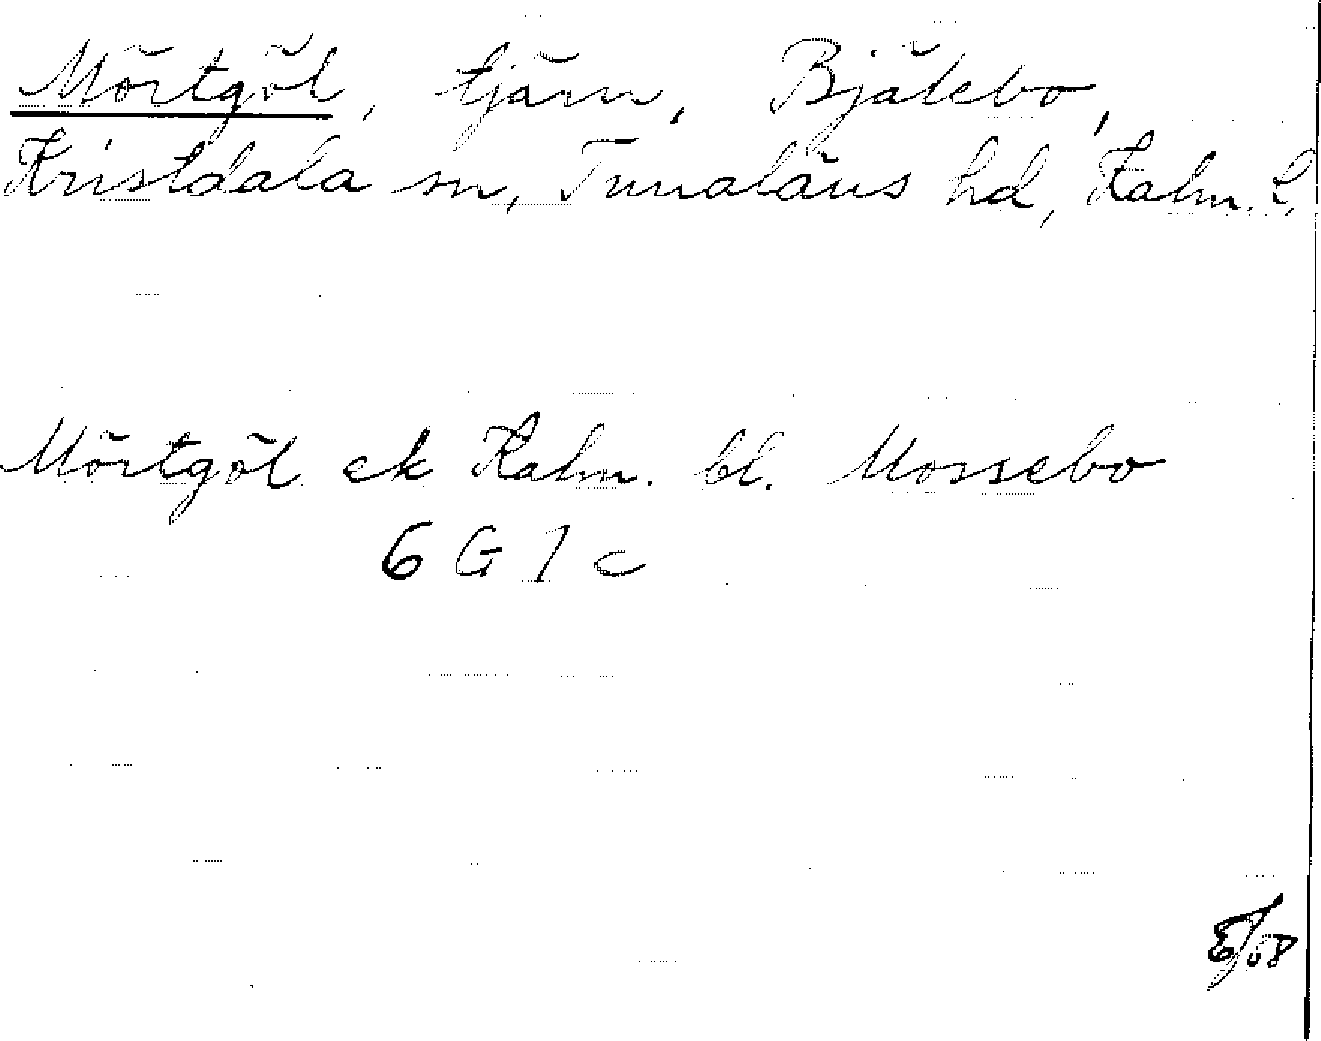 Mörtgöl, tjärn, Bjälebo,
Kristdala sn, Tunaläns hd, Kalm. l.
Mörtgöl ek Kalm. bl. Mossebo
6 G 1 c